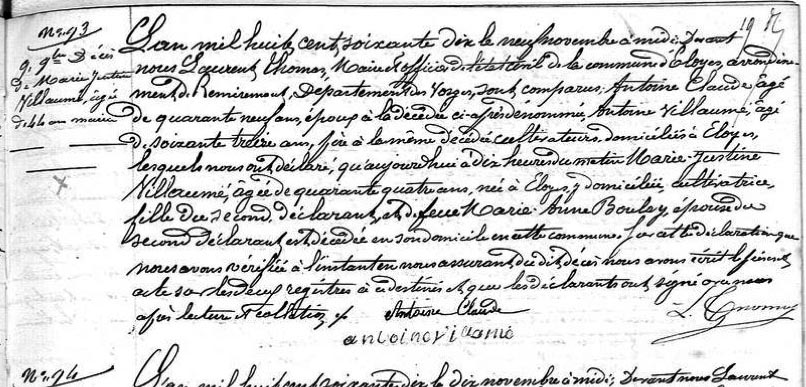 19
N° 93
9. 9bre Décès
de Marie Justine
Villaumé, âgée
de 44 ans mariée
L'an mil huit cent soixante dix le neuf novembre à midi; Devant
nous Laurent Thomas, Maire et officier de l'état civil de la commune d'Eloyes, arrondisse-
ment de Remiremont, Département des Vosges, sont comparus, Antoine Claude, âgé
de quarante neuf ans, époux à la décédée ci-après dénommée, Antoine Villaumé, âgé
de soixante treize ans, père à la même décédée cultivateurs domiciliés à Eloyes,
lesquels nous ont déclaré, qu'aujourd'hui à dix heures du matin Marie-Justine
Villaumé, âgée de quarante quatre ans, née à Eloyes, y domiciliée, cultivatrice,
fille du second déclarant, et de feue Marie-Anne Boulay, épouse du
second déclarant est décédée en son domicile en cette commune. Sur cette déclaration que
nous avons vérifiée à l'instant en nous assurant du dit décès nous avons écrit le présent
acte sur les deux registres à ce destinés et que les déclarants ont signé avec nous
après lecture et collation
Antoine Claude
antoine vilaume
L. Thomas
N° 94
L'an mil huit cent soixante dix le dix novembre à midi; Devant nous Laurent